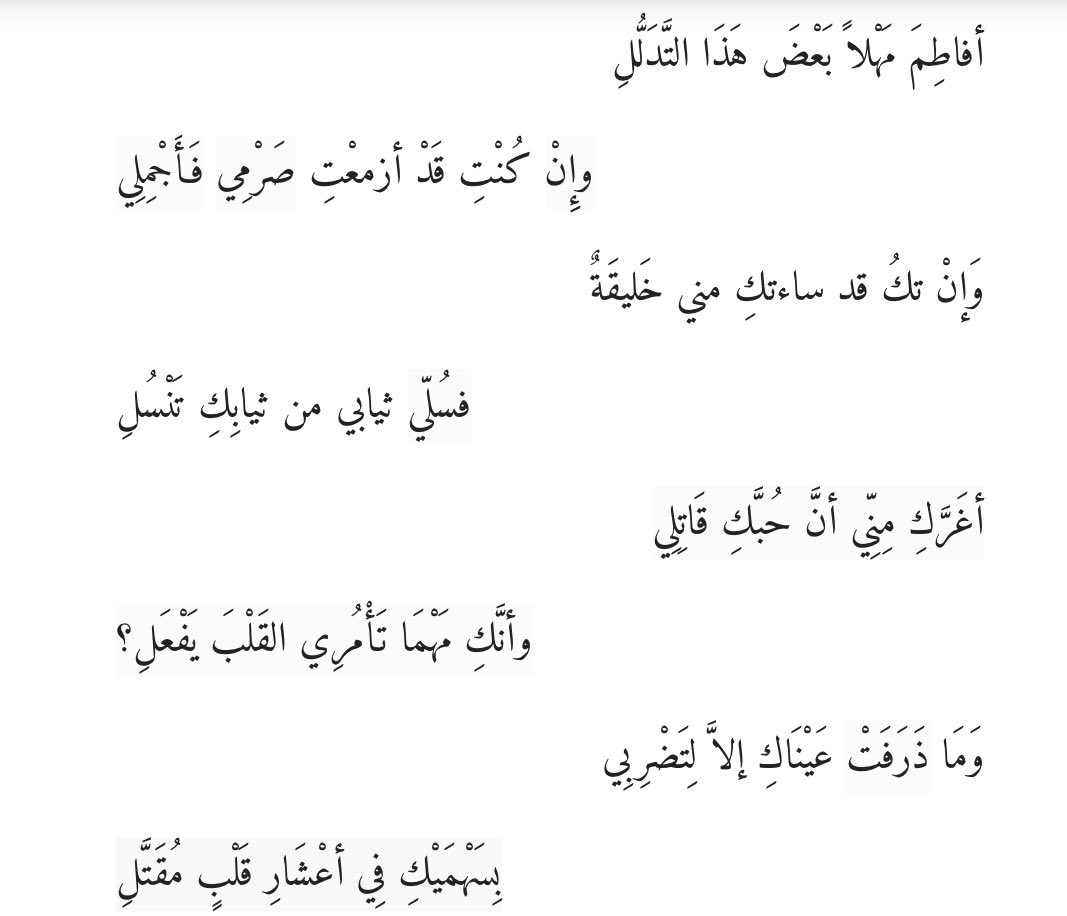 أفاطِمَ مَهْلاً بَعْضَ هَذَا التَّدَلُّلِ
وإِنْ كُنْتِ قَدْ أزمعْتِ صَرْمِي فَأَجْمِلِي
وَإنْ تكُ قد ساءتكِ مني خَليقَةٌ
فسُلّي ثيابي من ثيابِكِ تَنْسُلِ
أغَرَّكِ مِنِّي أنَّ حُبَّكِ قَاتِلِي
وأنَّكِ مَهْمَا تَأْمُرِي القَلْبَ يَفْعَلِ؟
وَمَا ذَرَفَتْ عَيْنَاكِ إلاَّ لِتَضْرِبِي
بِسَهْمَيْكِ فِي أعْشَارِ قَلْبٍ مُقَتَّلِ